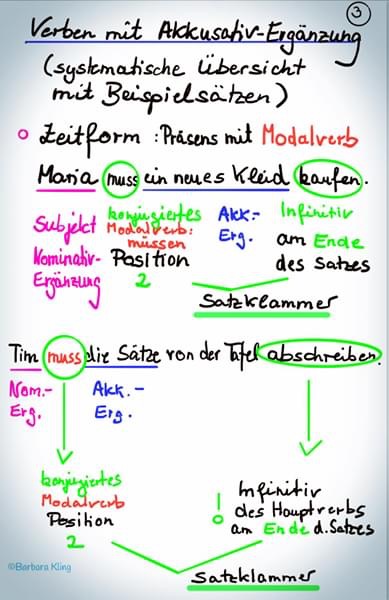 3
Verben mit Akkusativ-Ergänzung
(systematische Übersicht
mit Beispielsätzen)
Zeitform: Präsens mit Modalverb
Maria muss ein neues Kleid kaufen.
Subjekt
Nominativ-
Ergänzung
konjugiertes
Modalverb:
müssen
Position
2
Akk.-
Erg.
Infinitiv
am Ende
des Satzes
Satzklammer
Tim muss die Sätze von der Tafel abschreiben.
Nom.-
Erg.
Akk.-
Erg.
konjugiertes
Modalverb
Position
2
! Infinitiv
des Hauptverbs
am Ende d. Satzes
Satzklammer
©Barbara Kling